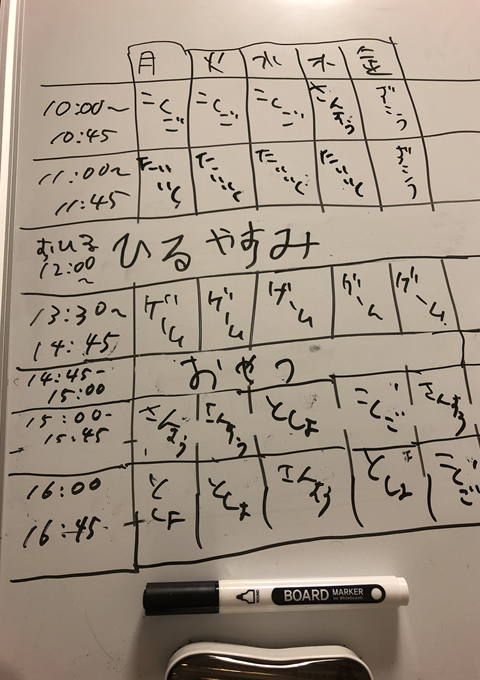 月 火 水 木 金
10:00〜
10:45
こくご こくご こくご さんすう ずこう
11:00〜
11:45
たいいく たいいく たいいく たいいく ずこう
おひる
12:00
〜
ひるやすみ
13:30〜
14:45
ゲーム ゲーム ゲーム ゲーム ゲーム
14:45-
15:00
おやつ
15:00-
15:45
さんすう さんすう としょ こくご さんすう
16:00
16:45-
としょ としょ さんすう としょ こくご
BOARD MARKER
for Whiteboards